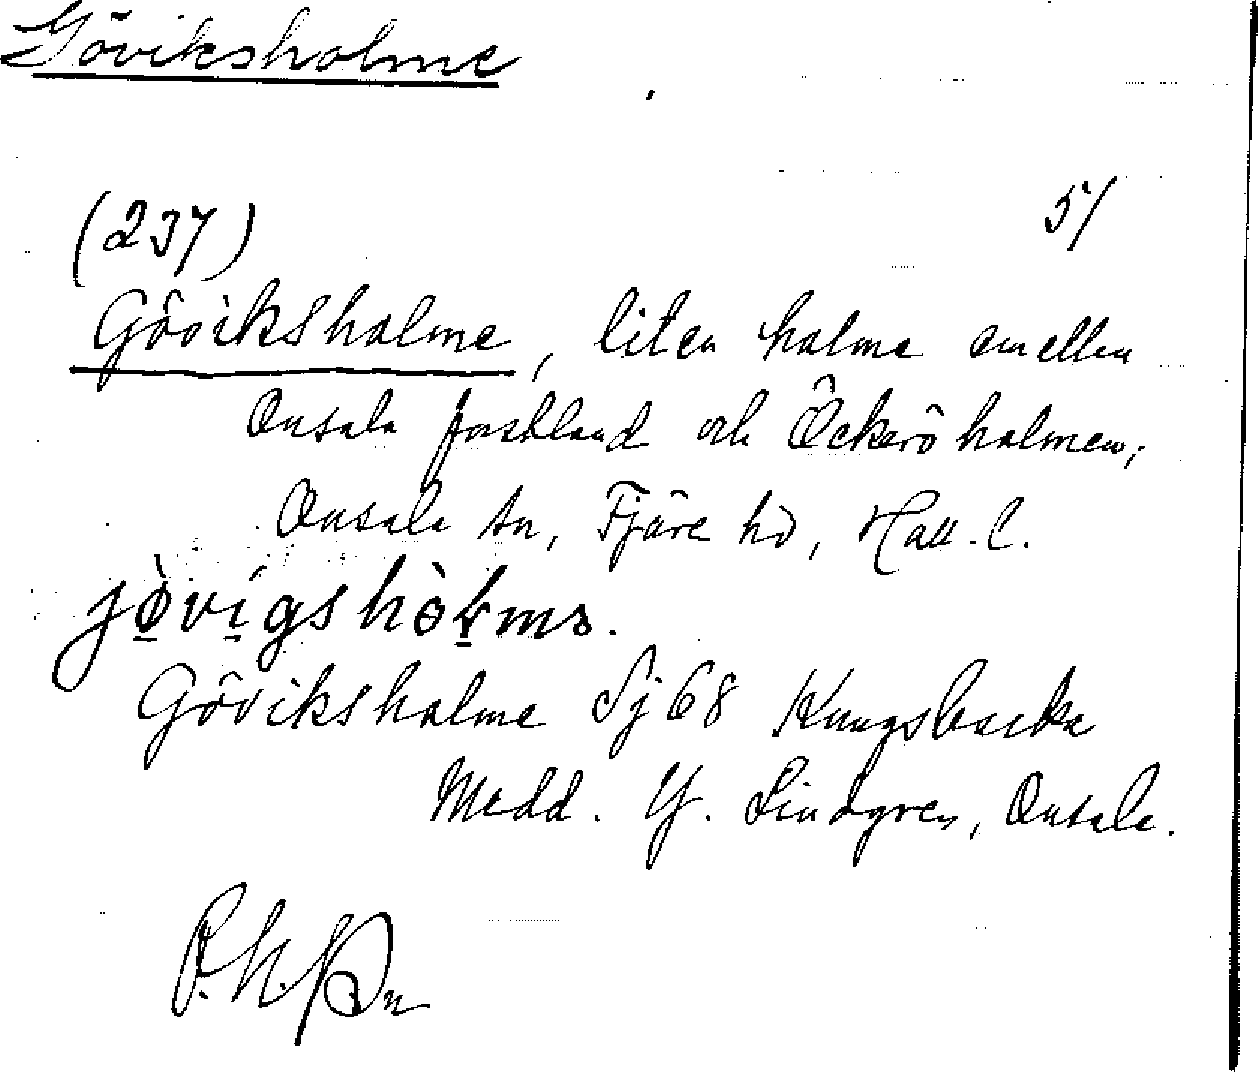 Göviksholme
(237) 51
Göviksholme, liten holme emellan
Onsala fastland och Öckeröholmen,
Onsala sn, Fjäre hd, Hall. l.
Göviksholme Sj 68 Kungsbacka
Medd. Y. Lindgren, Onsala.